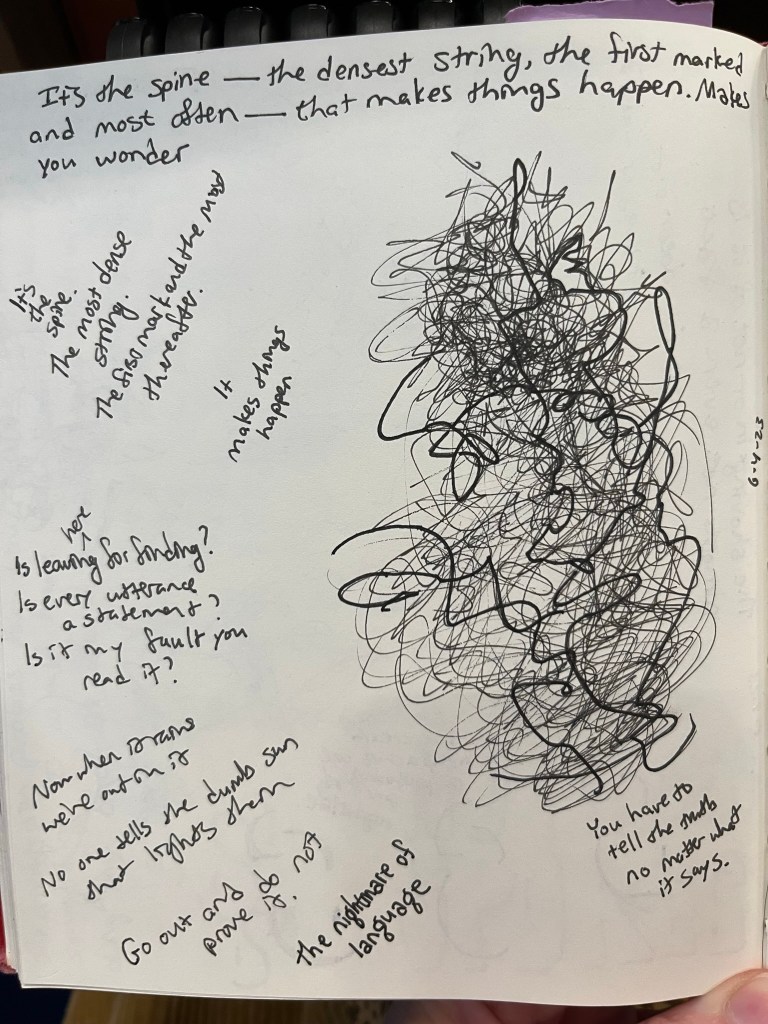 It's the spine — the densest string, the first marked
and most often — that makes things happen. Makes
you wonder
It's
the
spine.
The most dense
string.
The first mark and the most
thereafter.
It
makes things
happen
here
Is leaving for finding?
Is every utterance
a statement?
Is it my fault you
read it?
Now when it rains
we're out on it
No one tells the dumb sun
that lights them
Go out and
prove it. do not
the nightmare of
language
You have to
tell the truth
no matter what
it says.
6-4-23